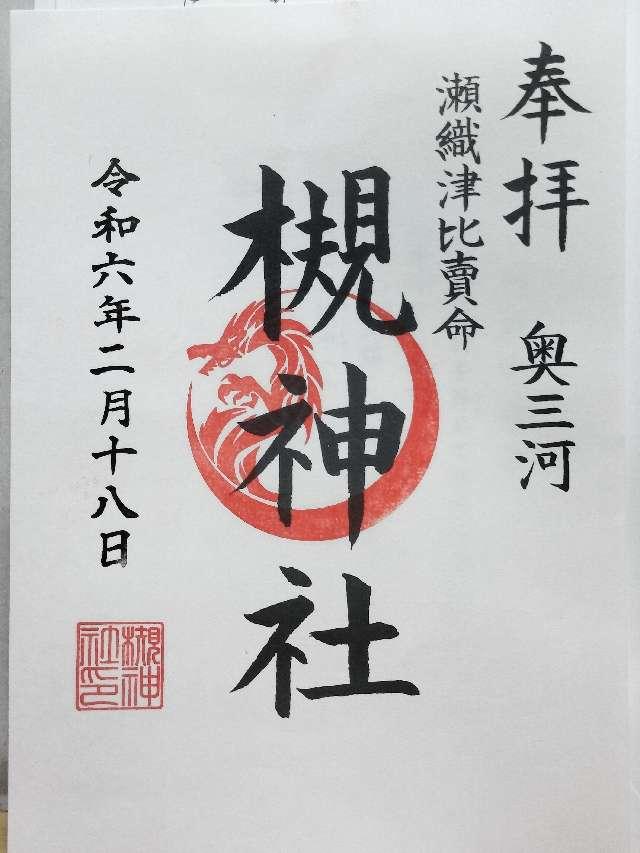 奉拝 奥三河
瀬織津比賣命
槻神社
令和六年二月十八日
槻神社印